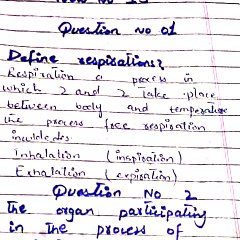 Question no 01
Define respirations?
Respiration a process in
which 2 and 2 take place
between body and temperature
the process free respiration
Inhalation (inspiration)
Exhalation (expiration)
Question No 2
The organ participating
in The process of